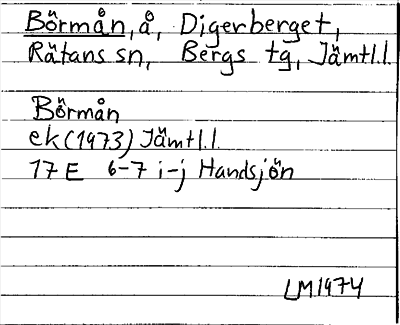 Börmån, å, Digerberget,
Rätans sn, Bergs tg, Jämtl.l.
Börmån
ek (1973) Jämtl.l.
17 E 6-7 i-j Handsjön
LM 1974